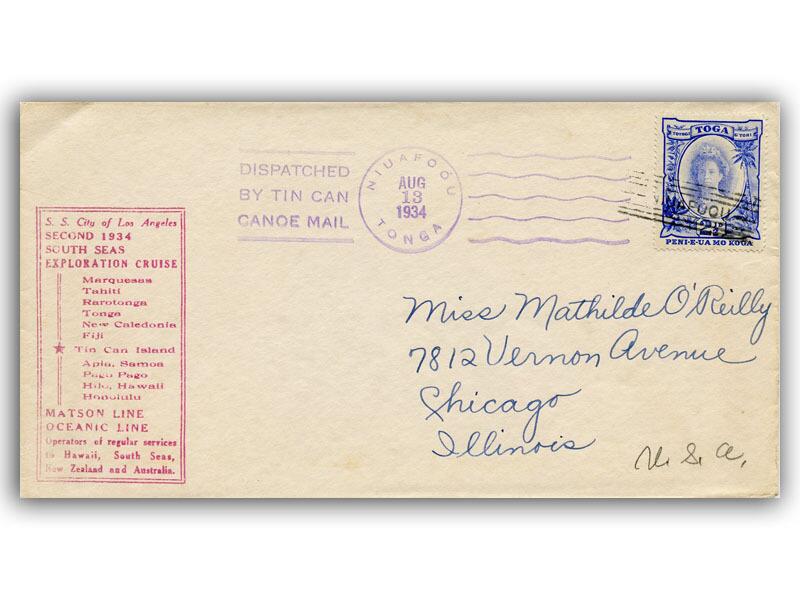 DISPATCHED
BY TIN CAN
CANOE MAIL
NIUAFOOU
AUG
13
1934
TONGA
TOGA
2½
PENI-E-UA MO KOGA
S. S. City of Los Angeles
SECOND 1934
SOUTH SEAS
EXPLORATION CRUISE
Marquesas
Tahiti
Rarotonga
Tonga
New Caledonia
Fiji
★ Tin Can Island
Apia, Samoa
Pago Pago
Hilo, Hawaii
Honolulu
MATSON LINE
OCEANIC LINE
Operators of regular services
to Hawaii, South Seas,
New Zealand and Australia.
Miss Mathilde O'Reilly
7812 Vernon Avenue
Chicago
Illinois
U. S. A.